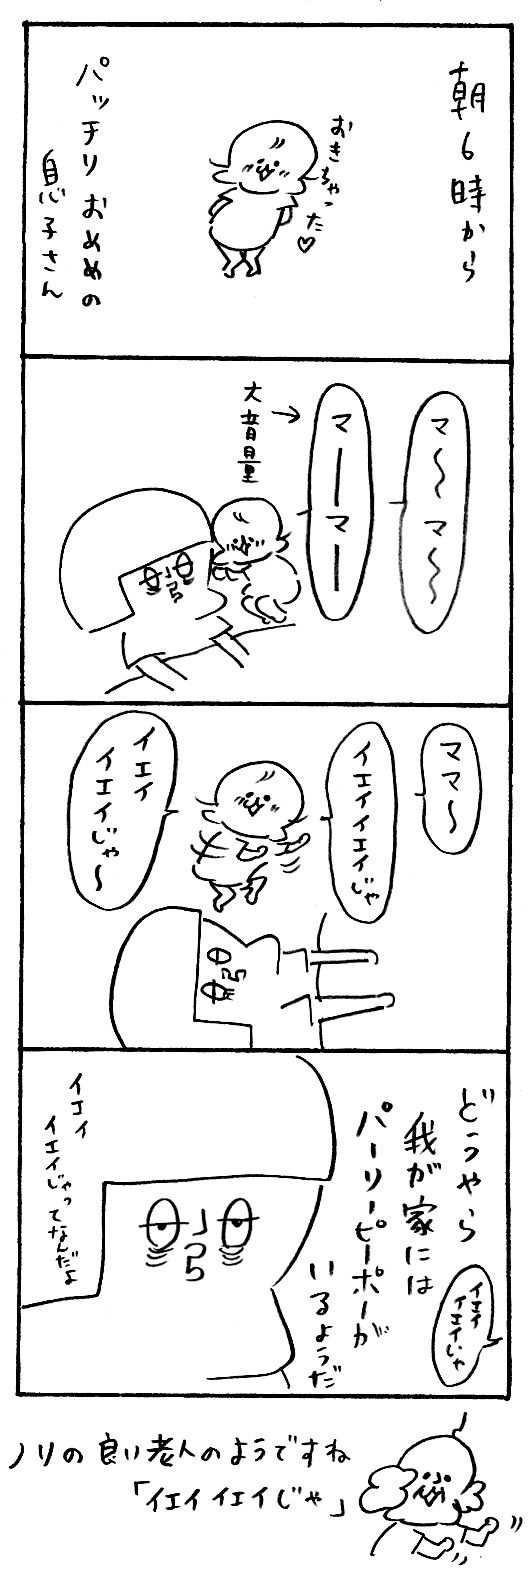 朝6時から
おきちゃった♡
パッチリおめめの
息子さん
マ〜〜マ〜〜
マーーマーー
大音量
ママ〜
イエイイエイじゃ
イエイ
イエイじゃ〜
どうやら
我が家には
パーリーピーポーが
いるようだ
イエイ
イエイじゃ
イエイ
イエイじゃってなんだよ
ノリの良い老人のようですね
「イエイイエイじゃ」